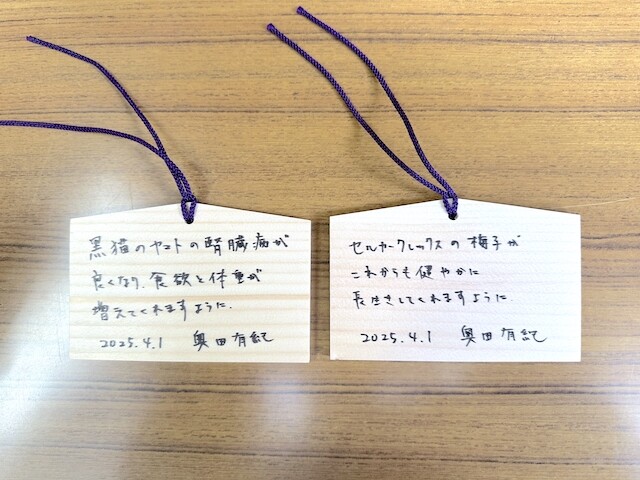 黒猫のヤマトの腎臓病が
良くなり、食欲と体重が
増えてくれますように.
2025.4.1 奥田有紀
セルカークレックスの梅子が
これからも健やかに
長生きしてくれますように.
2025.4.1 奥田有紀